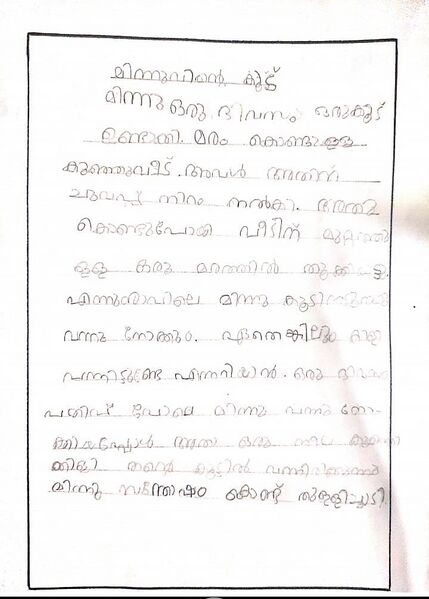 മിന്നുവിന്റെ കൂട്
മിന്നു ഒരു ദിവസം ഒരുകൂട്
ഉണ്ടാക്കി മരം കൊണ്ടുള്ള
കുഞ്ഞുവീട്. അവൾ അതിന്
ചുവപ്പു നിറം നൽകി. അത്
കൊണ്ടുപോയി വീടിന് മുറ്റത്തു
ഉള്ള ഒരു മരത്തിൽ തൂക്കിയിട്ടു.
എന്നുരാവിലെ മിന്നു കൂടിനടുത്തു
വന്നു നോക്കും. ഏതെങ്കിലും കിളി
വന്നിട്ടുണ്ടോ എന്നറിയാൻ. ഒരു ദിവസം
പതിവ് പോലെ മിന്നു വന്നു നോ-
ക്കിയപ്പോൾ അതാ ഒരു നീല കുഞ്ഞി
ക്കിളി തന്റെ കൂട്ടിൽ വന്നിരിക്കുന്നു
മിന്നു സന്തോഷം കൊണ്ട് തുള്ളിച്ചാടി